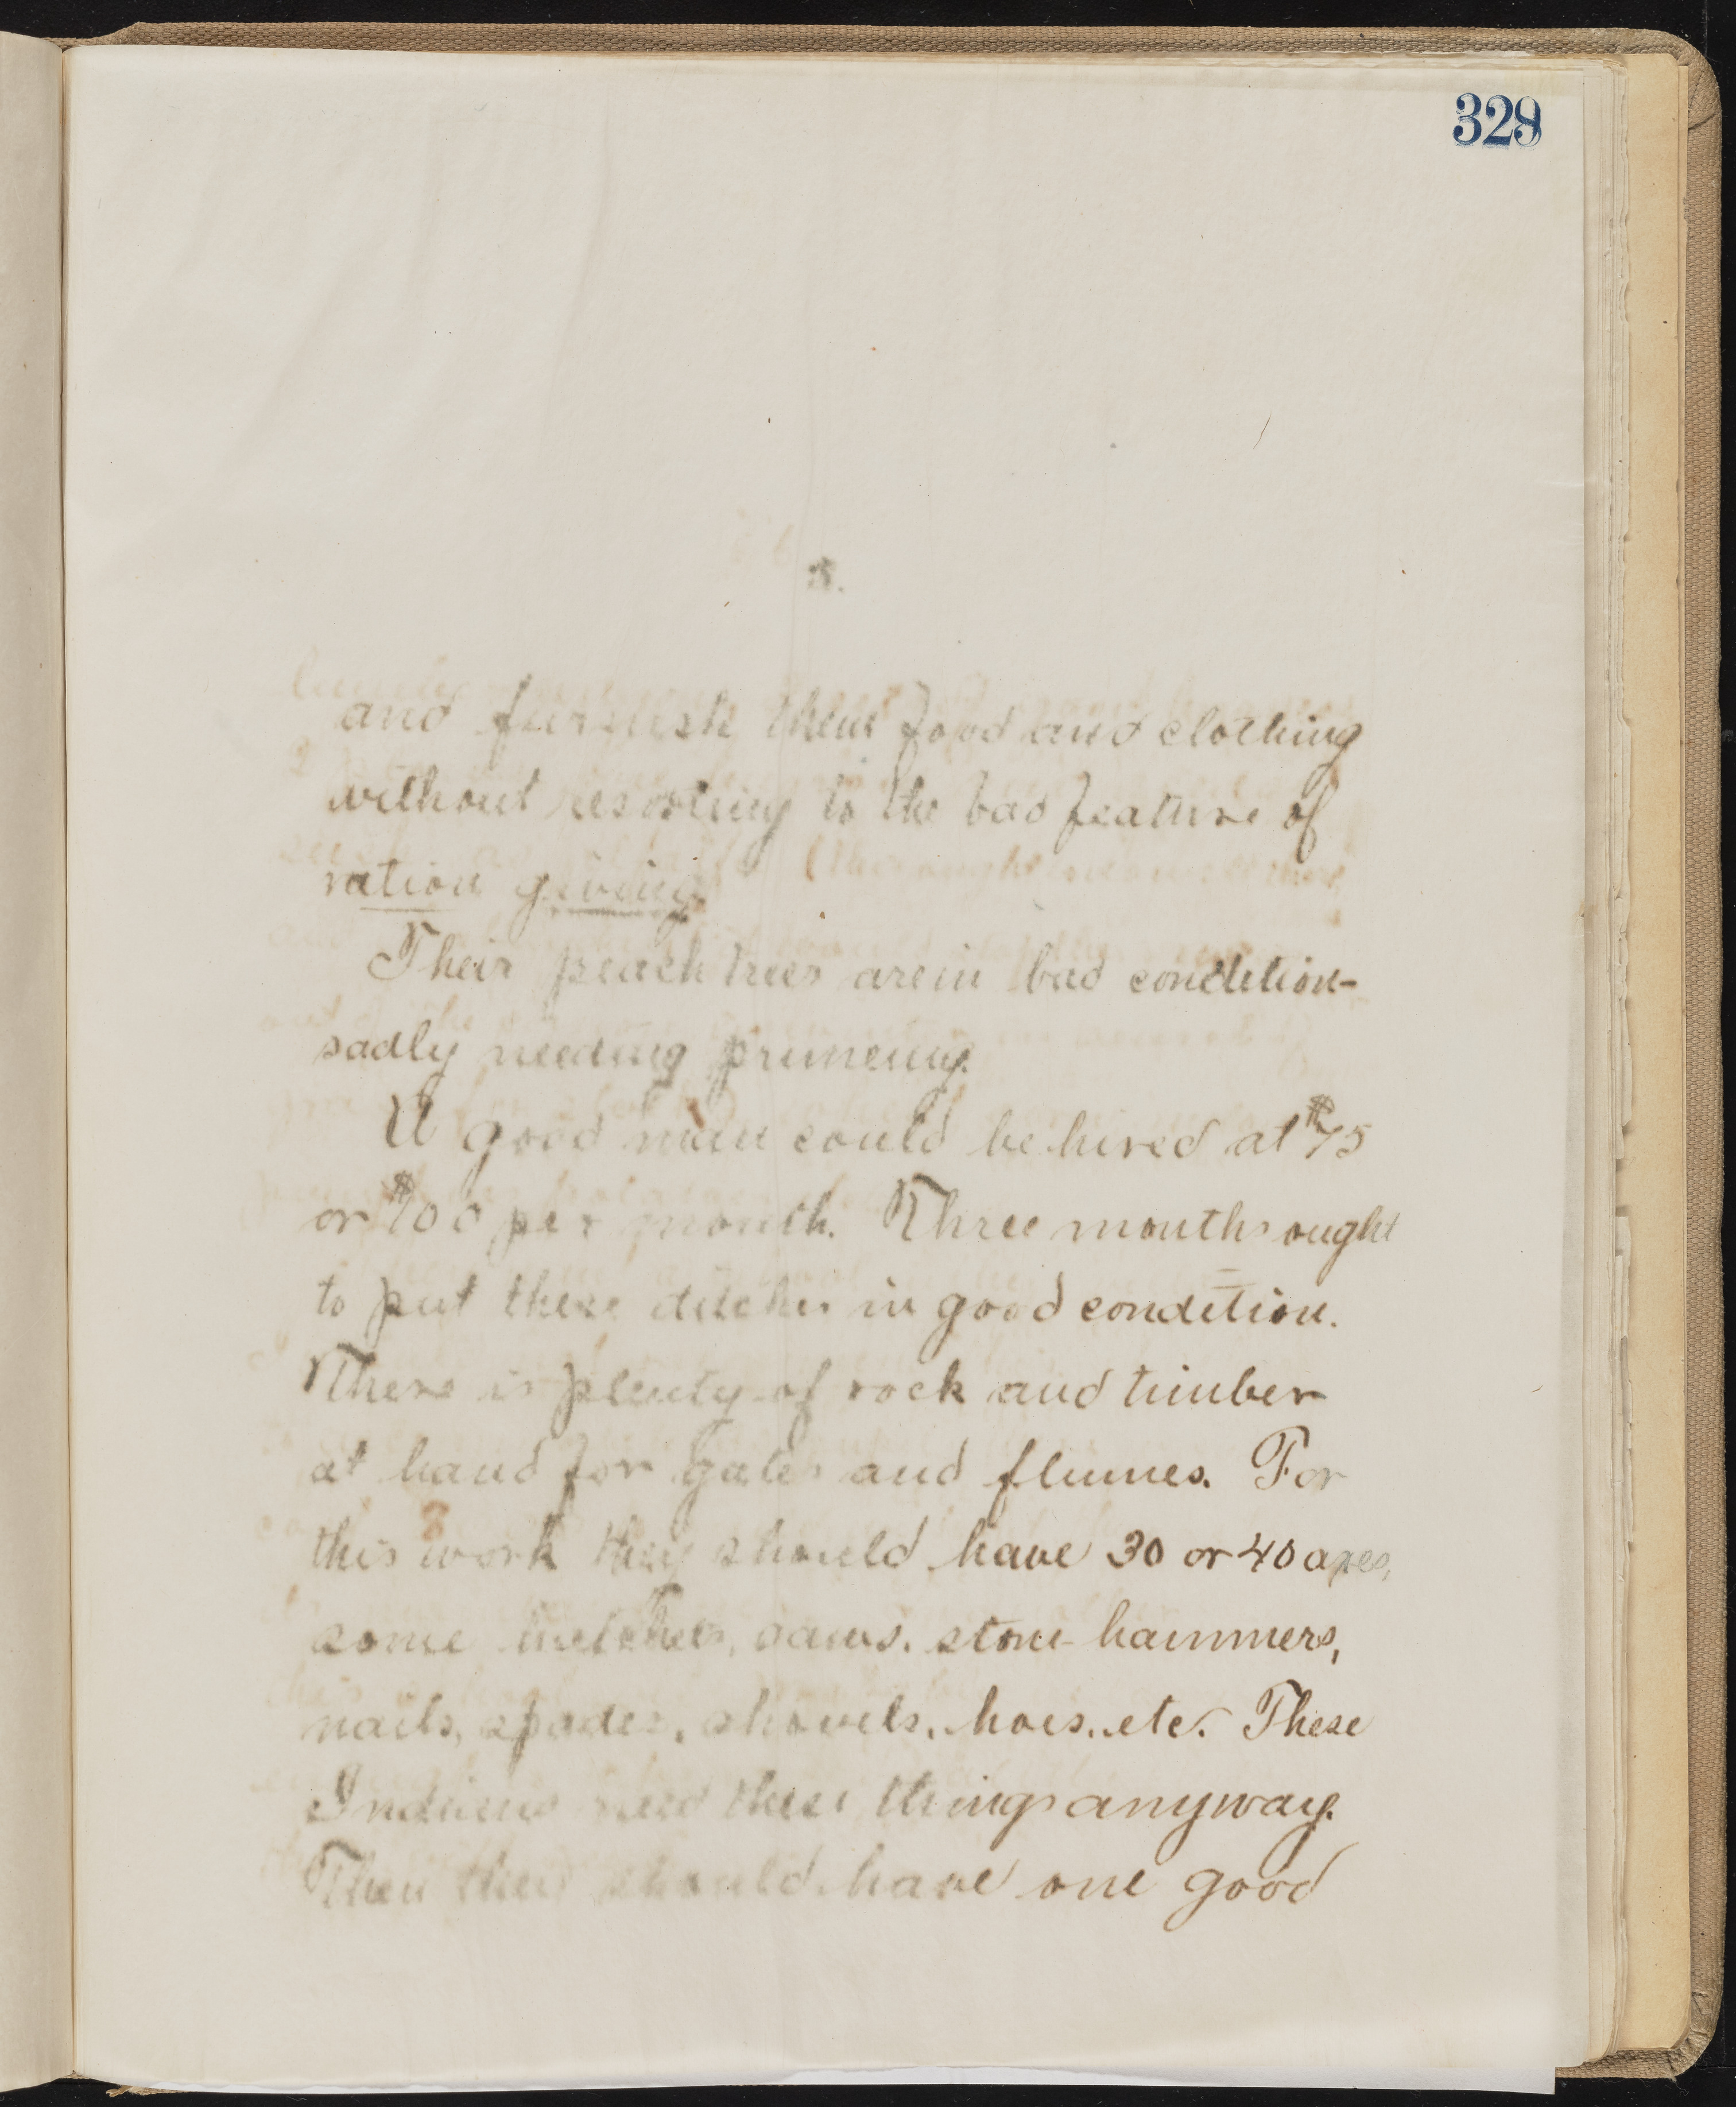 329
5.
and furnish them food and clothing
without resorting to the bad feature of
ration giving.
Their peach trees are in bad condition-
sadly needing pruneing.
A good man could be hired at $75
or $100 per month. Three months ought
to put these ditches in good condition.
There is plenty of rock and timber
at hand for gates and flumes. For
this work they should have 30 or 40 axes,
some hatchets, saws, stone-hammers,
nails, spades, shovels, hoes, etc. These
Indians need these things anyway.
Then they should have one good